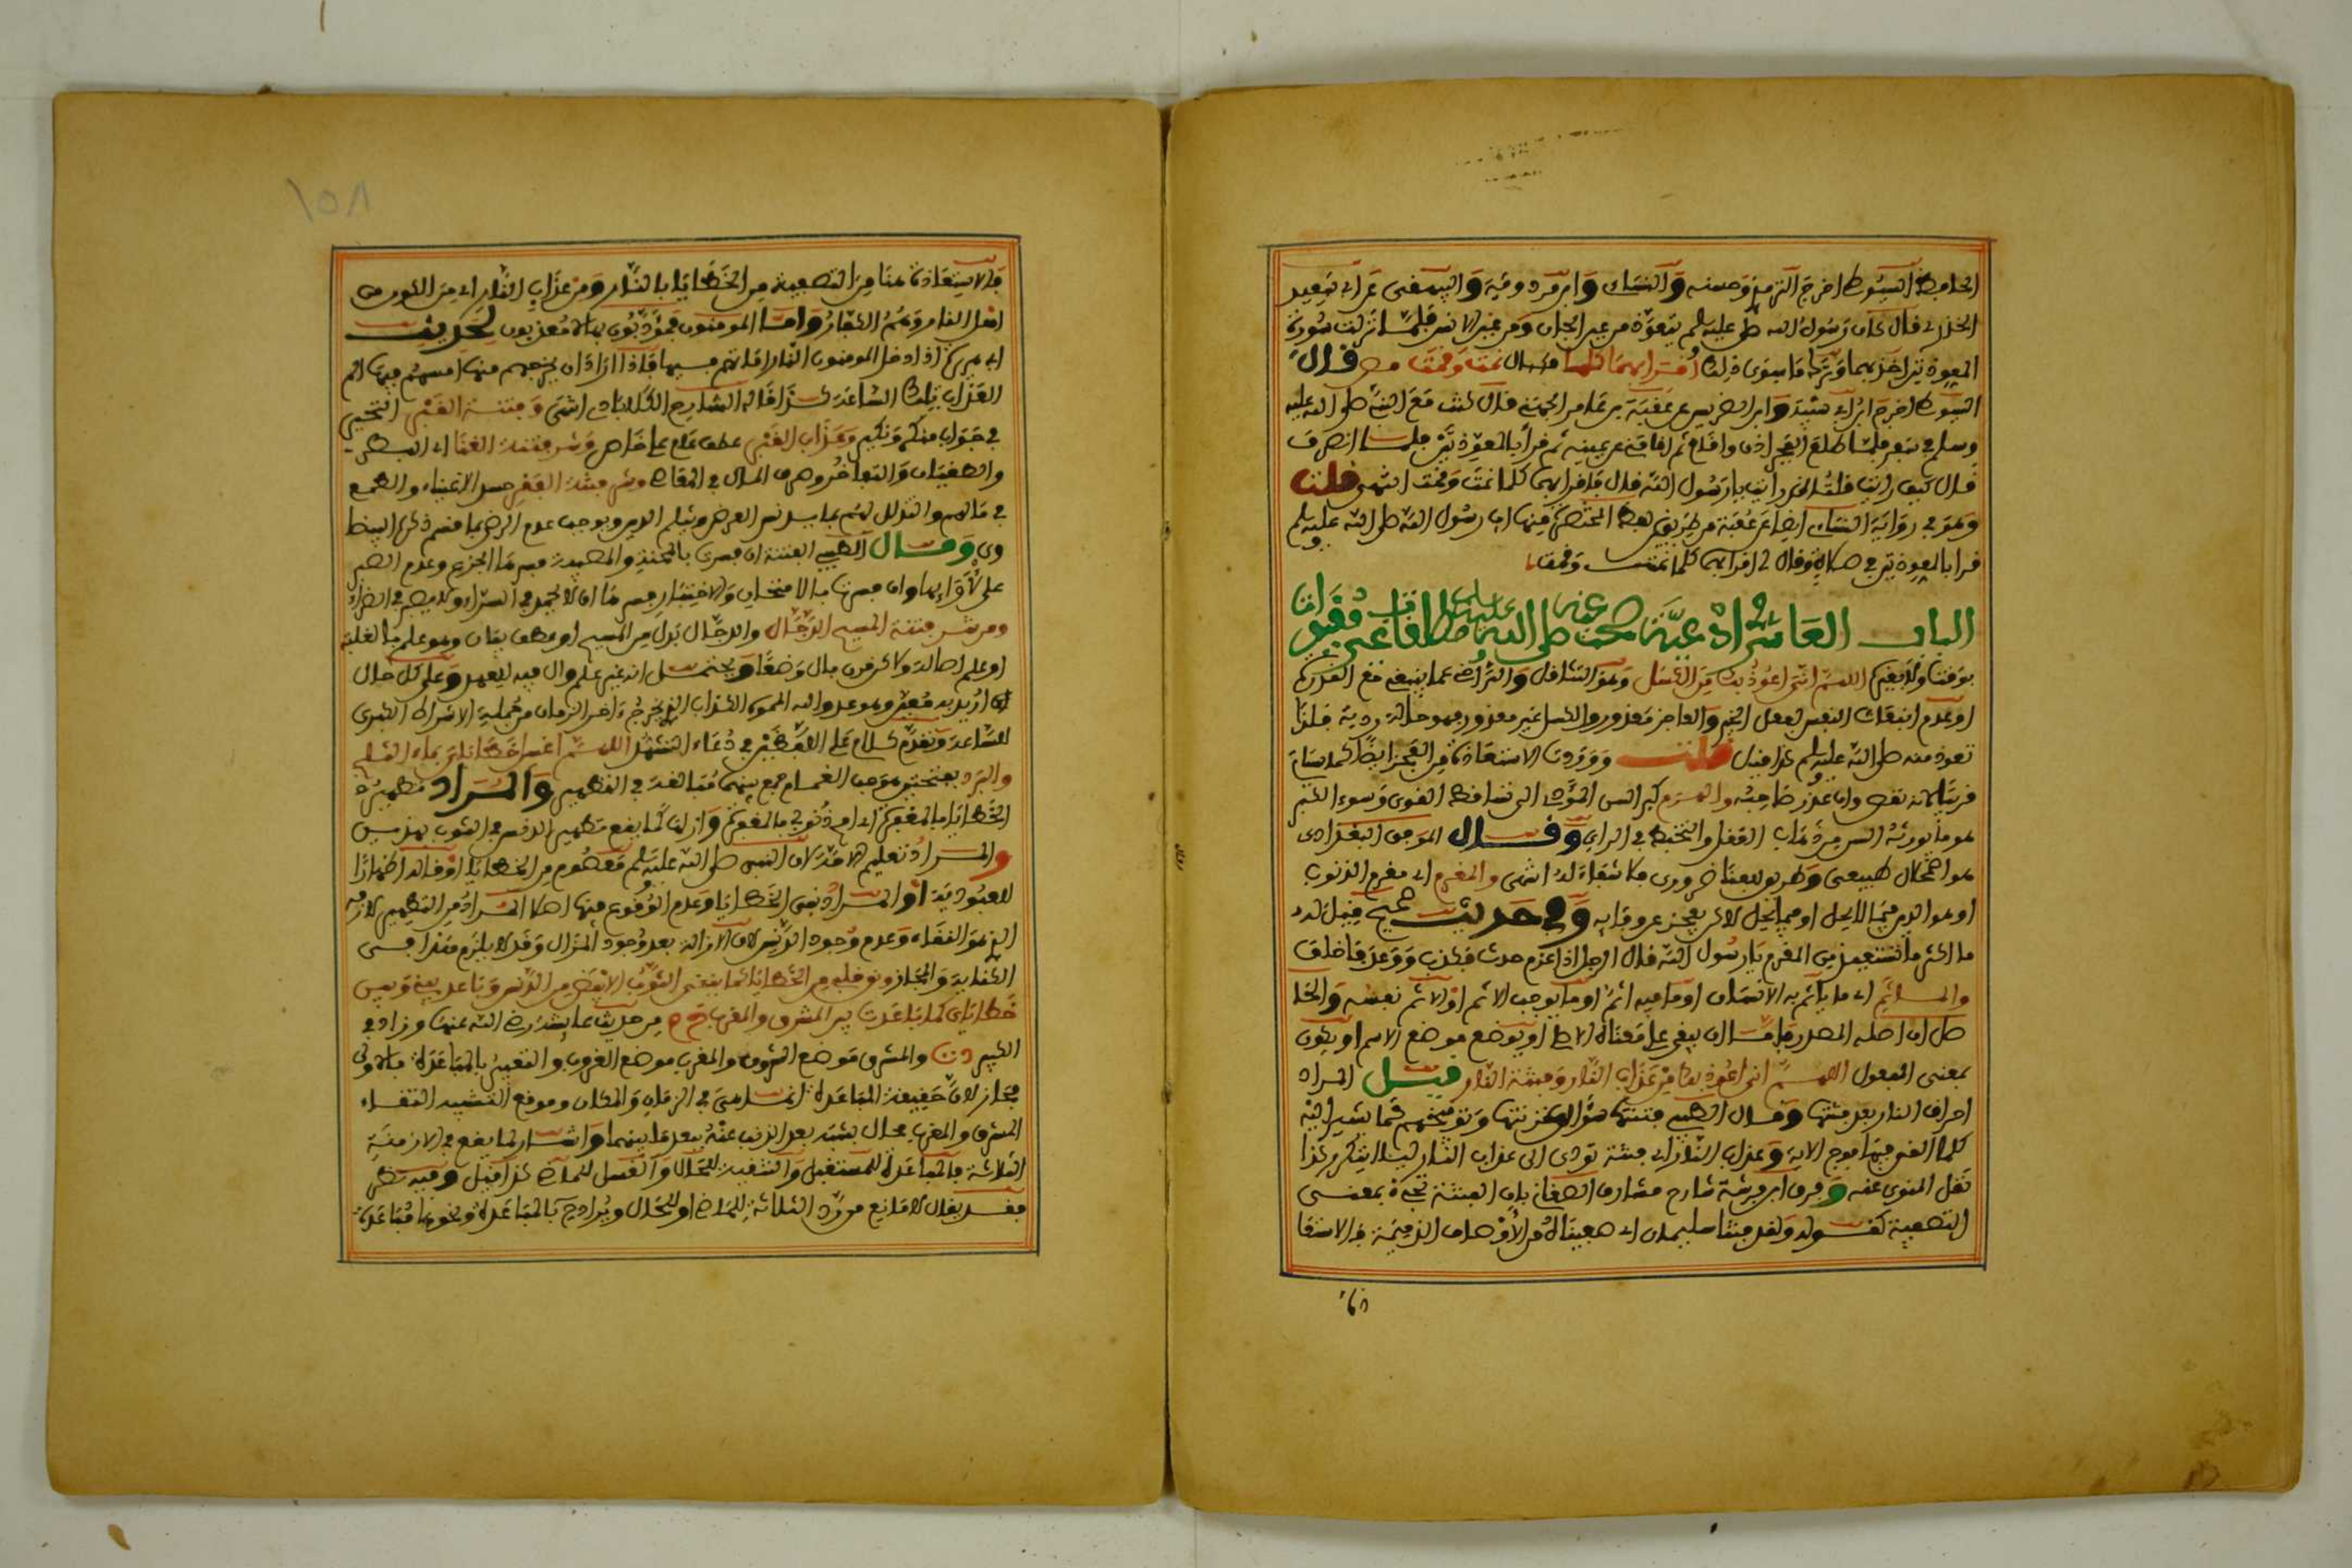 الحافظ السيوطي اخرج الترمذي وحسنه والنسائي وابن مردويه والبيهقي عن ابي سعيد
الخدري قال كان رسول الله صلى الله عليه وسلم يتعوذ من عين الجان ومن عين الانس فلما نزلت سورة
المعوذتين اخذ بهما وترك ما سوى ذلك اقرأ بهما كلما نمت وقمت قال
السيوطي اخرج ابن ابي شيبة وابن الضريس عن عقبة بن عامر الجهني قال كنت مع النبي صلى الله عليه
وسلم في سفر فلما طلع الفجر اذن واقام ثم اقامني عن يمينه ثم قرأ بالمعوذتين فلما انصرف
قال كيف رايت قلت قد رايت يا رسول الله قال فاقرا بهما كلما نمت وقمت انتهى قلت
وهو في رواية النسائي ايضا عن عقبة من طريق بهذا المختصر منها ان رسول الله صلى الله عليه وسلم
قرا بالمعوذتين في صلاة وقال لي اقرا بهما كلما نمت وقمت
الباب العاشر ادعية صحت عنه صلى الله عليه وسلم مطلقات غير مقيدات
اللهم اني اعوذ بك من الكسل وهو التثاقل والتراخي عما ينبغي مع القدرة
او عدم انبعاث النفس لفعل الخير والعاجز معذور والكسل غير معذور فهو حالة ردية فلذا
تعوذ منه صلى الله عليه وسلم كذا قيل قلت ووردت الاستعاذة من العجز ايضا كما سياتي
قريبا لانه نقص وان عذر صاحبه والهرم كبر السن المؤدي الى تساقط القوى وسوء الكبر
هو ما يورثه السن من ذهاب العقل والتخبط في الراي وقال الموفق البغدادي
هو اضمحلال طبيعي وطريق للفنا ضروري فلا شفاء له انتهى والمغرم اي مغرم الذنوب
او هو الدين فيما لا يحل او فيما يحل لاكن يعجز عن وفايه وفي حديث صحيح قيل له
ما اكثر ما تستعيذ من المغرم يا رسول الله فقال الرجل اذا غرم حدث فكذب ووعد فاخلف
والماثم اي ما ياثم به الانسان او ما فيه اثم او ما يوجب الاثم او الاثم نفسه والحا
صل ان اصله المصدر فاما ان يبقى على معناه الاصلي او يوضع موضع الاسم او يكون
بمعنى المفعول اللهم اني اعوذ بك من عذاب النار وفتنة النار قيل المراد
احراق النار بعد فتنتها وقال الطيبي فتنتها سؤال خزنتها وتوبيخهم كما يشير اليه
كلما القي فيها فوج الاية وعذاب النار اي فتنة تودي الى عذاب النار ليلا يتكرر كذا
نقل المنوي عنه وفرق ابن فرشته شارح مشارق الصغاني بان الفتنة تجيء بمعنى
التصفية كقوله ولقد فتنا سليمان اي صفيناه من الاوصاف الذميمة فالاستعا
فالا
١٥٨
فالاستعاذة هنا من التصفية من الخطايا بالنار ومن عذاب النار اي من الكون من
اهل النار وهم الكفار واما المومنون فمؤدبون بها لا معذبون لحديث
ابي هريرة اذا دخل المومنون النار اماتهم فيها فاذا اراد ان يخرجهم منها امسهم فيها الم
العذاب تلك الساعة كذا قاله الشارح الكلاباذي انتهى وفتنة القبر التحير
في جواب منكر ونكير وعذاب القبر عطف عام على خاص وشر فتنة الغنا اي البطر
والطغيان والتفاخر وصرف المال في المعاصي وشر فتنة الفقر حسد الاغنياء والطمع
في مالهم والتذلل لهم بما يدنس العرض ويثلم الدين ويوجب عدم الرضى بما قسم ذكره البيضا
وي وقال الطيبي الفتنة ان فسرت بالمحنة والمصيبة فشرها الجزع وعدم الصبر
على لأوائها وان فسرتها بالامتحان والاختبار فشرها ان لا يحمد في السراء ولا يصبر في الضراء
ومن شر فتنة المسيح الدجال والدجال بدل من المسيح او عطف بيان وهو علم بالغلبة
الساعة وتقدم كلام على اللفظين في دعاء التشهد اللهم اغسل خطاياي بماء الثلج
والبرد بفتحتين وهو حب الغمام جمع بينهما مبالغة في التطهير والمراد تطهيره
والمراد تعليم الامة لان النبي صلى الله عليه وسلم معصوم من الخطايا او قاله اظهارا
للعبودية او المراد نفي الخطايا وعدم الوقوع فيها اصلا المراد من التطهير لازمه
الذي هو النقاء وعدم وجود الدنس لان الازالة بعد وجود المزال وقد لا يلزم
ونق قلبي من الخطايا كما ينقى الثوب الابيض من الدنس وباعد بيني وبين
خطاياي كما باعدت بين المشرق والمغرب خ م من حديث عايشة رضي الله عنها وزاد في
الكبير والمشرق موضع الشروق والمغرب موضع الغروب والتعبير بالمباعدة
مجاز لان حقيقة المباعدة انما هي في الزمان والمكان وموقع التشبيه التقاء
المشرق والمغرب محال بشبه بعد الذنب عنه ببعد ما بينهما واشار لما يقع في الازمنة
الثلاثة بالمباعدة للمستقبل والتنقية للحال والغسل للماضي كذا قيل وفيه نظر
فقد يقال لا مانع من رد الثلاثة للماضي او للحال